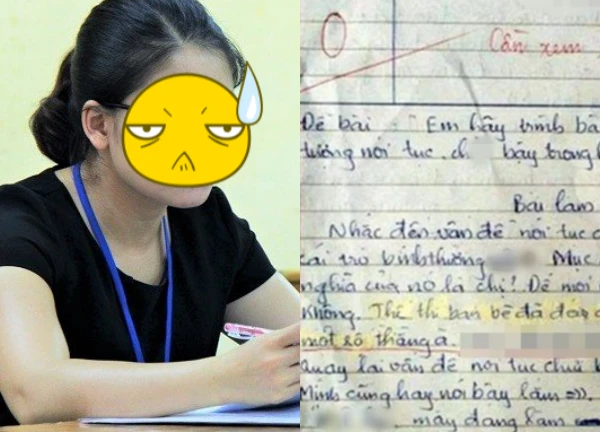 0
Cần xem
Đề bài : "Em hãy trình bà
tượng nói tục, ch bậy trong
Bài làm
Nhắc đến vấn đề nói tục c
cái trò bình thường Mục
nghĩa của nó là chi! Để mọi
không. Thế thì bạn bè đã đón
một số thằng à.
Quay lại vấn đề nói tục chử
Mình cũng hay nói bậy lắm =)),
mày đang làm